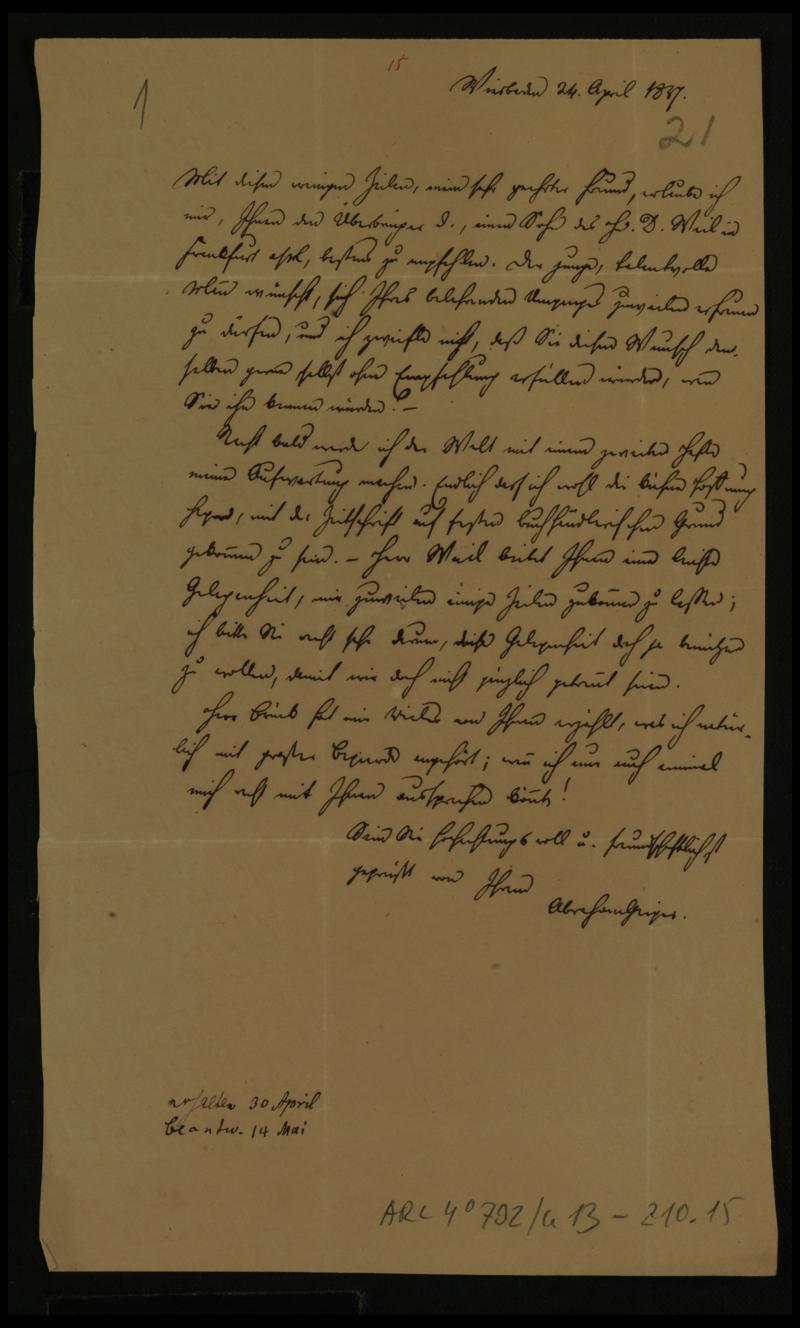 15
1
Wiesbaden 24. April 1837.
21
Mit diesen wenigen Zeilen, mein sehr geehrter Freund, erlaube ich
mir, Ihnen den Überbringer d., einen Sohn des Hr. D. Weil in
Frankfurt a/M, bestens zu empfehlen. Der junge, talentvolle
Mann wünscht, sich Ihres belehrenden Umganges zuweilen erfreuen
zu dürfen, und ich zweifle nicht, daß Sie diesen Wunsch dem-
selben gern selbst ohne Empfehlung erfüllen würden, wenn
Sie ihn kennen würden. –
Recht bald werde ich der Welt mit einem zweiten Hefte
meine Aufwartung machen. Endlich darf ich wohl die sichere Hoffnung
hegen, mit der Zeitschrift auf festen buchhändlerischen Grund
gekommen zu sein. – Herr Weil bietet Ihnen eine leichte
Gelegenheit, mir zuweilen einige Zeilen zukommen zu lassen;
ich bitte Sie recht sehr darum, diese Gelegenheit doch ja benützen
zu wollen, damit wir doch nicht gänzlich getrennt seien.
Herr Brück hat mir Vieles von Ihnen erzählt, was ich natür-
lich mit großer Begierde angehört; wenn ich nur auch einmal
mich recht mit Ihnen aussprechen könnte!
Seien Sie hochachtungsvoll u. freundschaftlichst
gegrüßt von Ihrem
Abraham Geiger.
erhalten 30 April
beantw. 14 Mai
ARC 4° 792/a 13 – 210.15